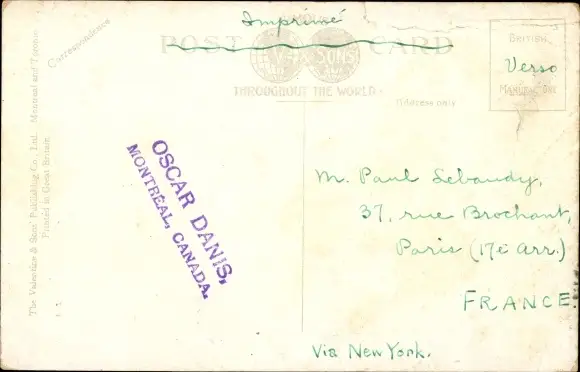 Imprimé
POST CARD
THROUGHOUT THE WORLD
Correspondence
Address only
BRITISH
Verso
The Valentine & Sons' Publishing Co., Ltd., Montreal and Toronto
Printed in Great Britain
OSCAR DANIS,
MONTRÉAL, CANADA.
M. Paul Lebaudy,
37, rue Brochant,
Paris (17è Arr.)
FRANCE.
Via New York.